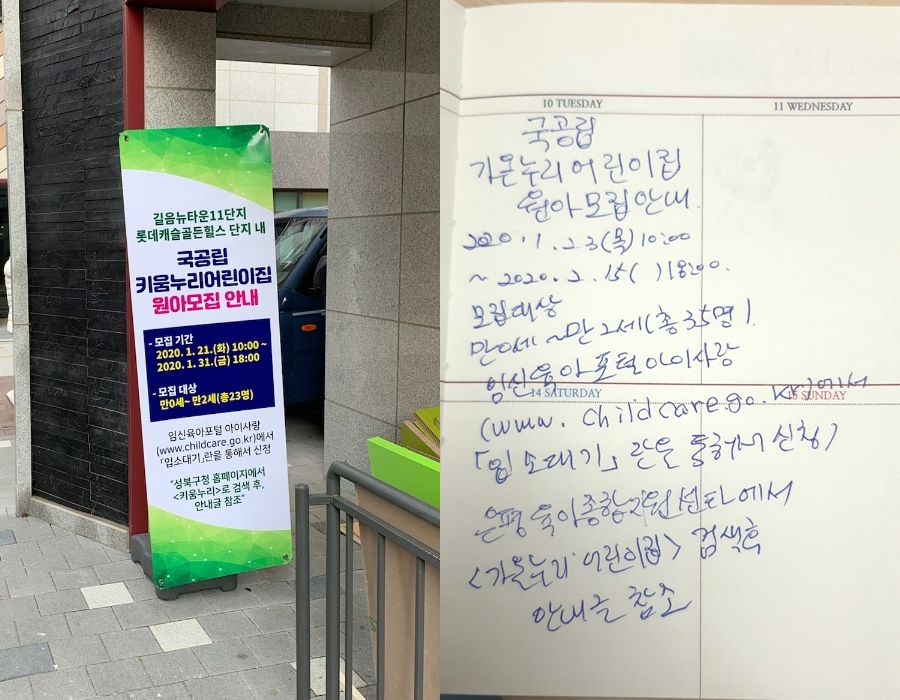 길음뉴타운11단지
롯데캐슬골든힐스 단지 내
국공립
키움누리어린이집
원아모집 안내
- 모집 기간
2020. 1. 21.(화) 10:00 ~
2020. 1. 31.(금) 18:00
- 모집 대상
만0세~ 만2세(총23명)
임신육아포털 아이사랑
(www.childcare.go.kr)에서
「입소대기」란을 통해서 신청
"성북구청 홈페이지에서
<키움누리>로 검색 후,
안내글 참조"
10 TUESDAY
11 WEDNESDAY
국공립
가온누리 어린이집
원아모집안내
2020. 1. 23(목) 10:00
~ 2020. 2. 15( ) 18:00.
모집대상
만0세 ~만 2세(총 35명)
임신육아포털아이사랑
14 SATURDAY
15 SUNDAY
(www. childcare.go.kr)에서
「입소대기」 란을 통해서 신청)
은평육아종합지원센타에서
<가온누리 어린이집> 검색후
안내글 참조